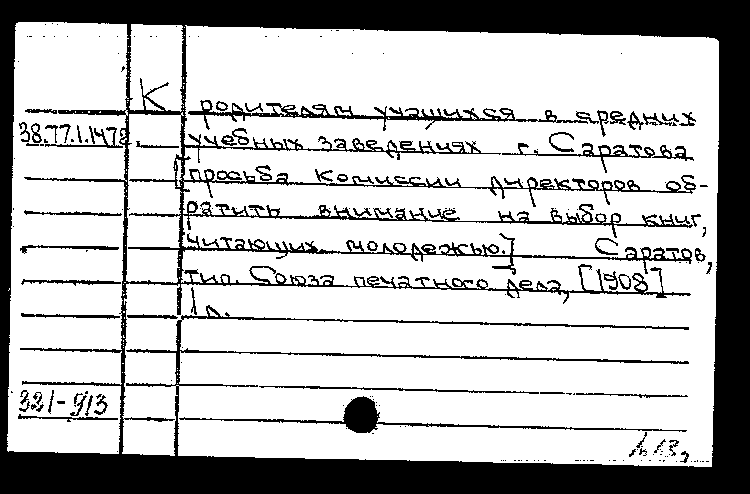 К родителям учащихся в средних
38.77.1.1478. учебных заведениях г. Саратова
[просьба комиссии директоров об-
ратить внимание на выбор книг,
читающих молодежью.] Саратов,
тип. Союза печатного дела, [1908]
1 л.
321-913